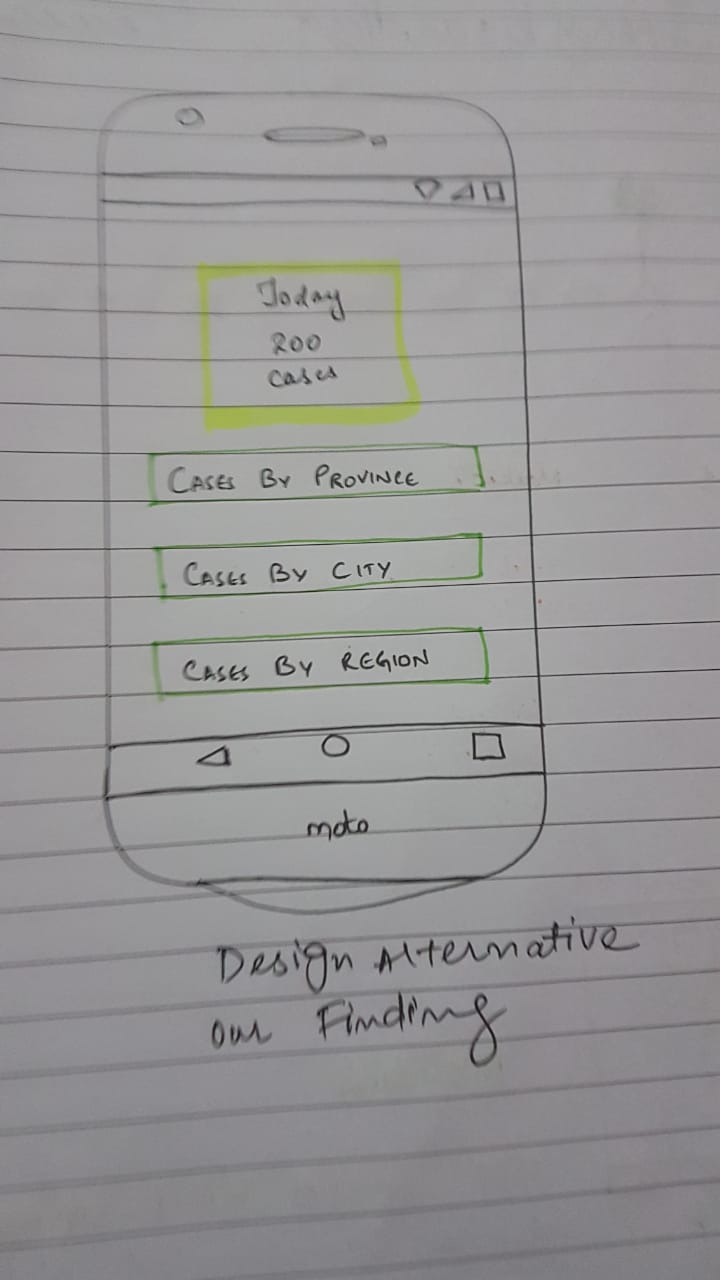 Today
200
cases
CASES BY PROVINCE
CASES BY CITY
CASES BY REGION
moto
Design Alternative
our Finding